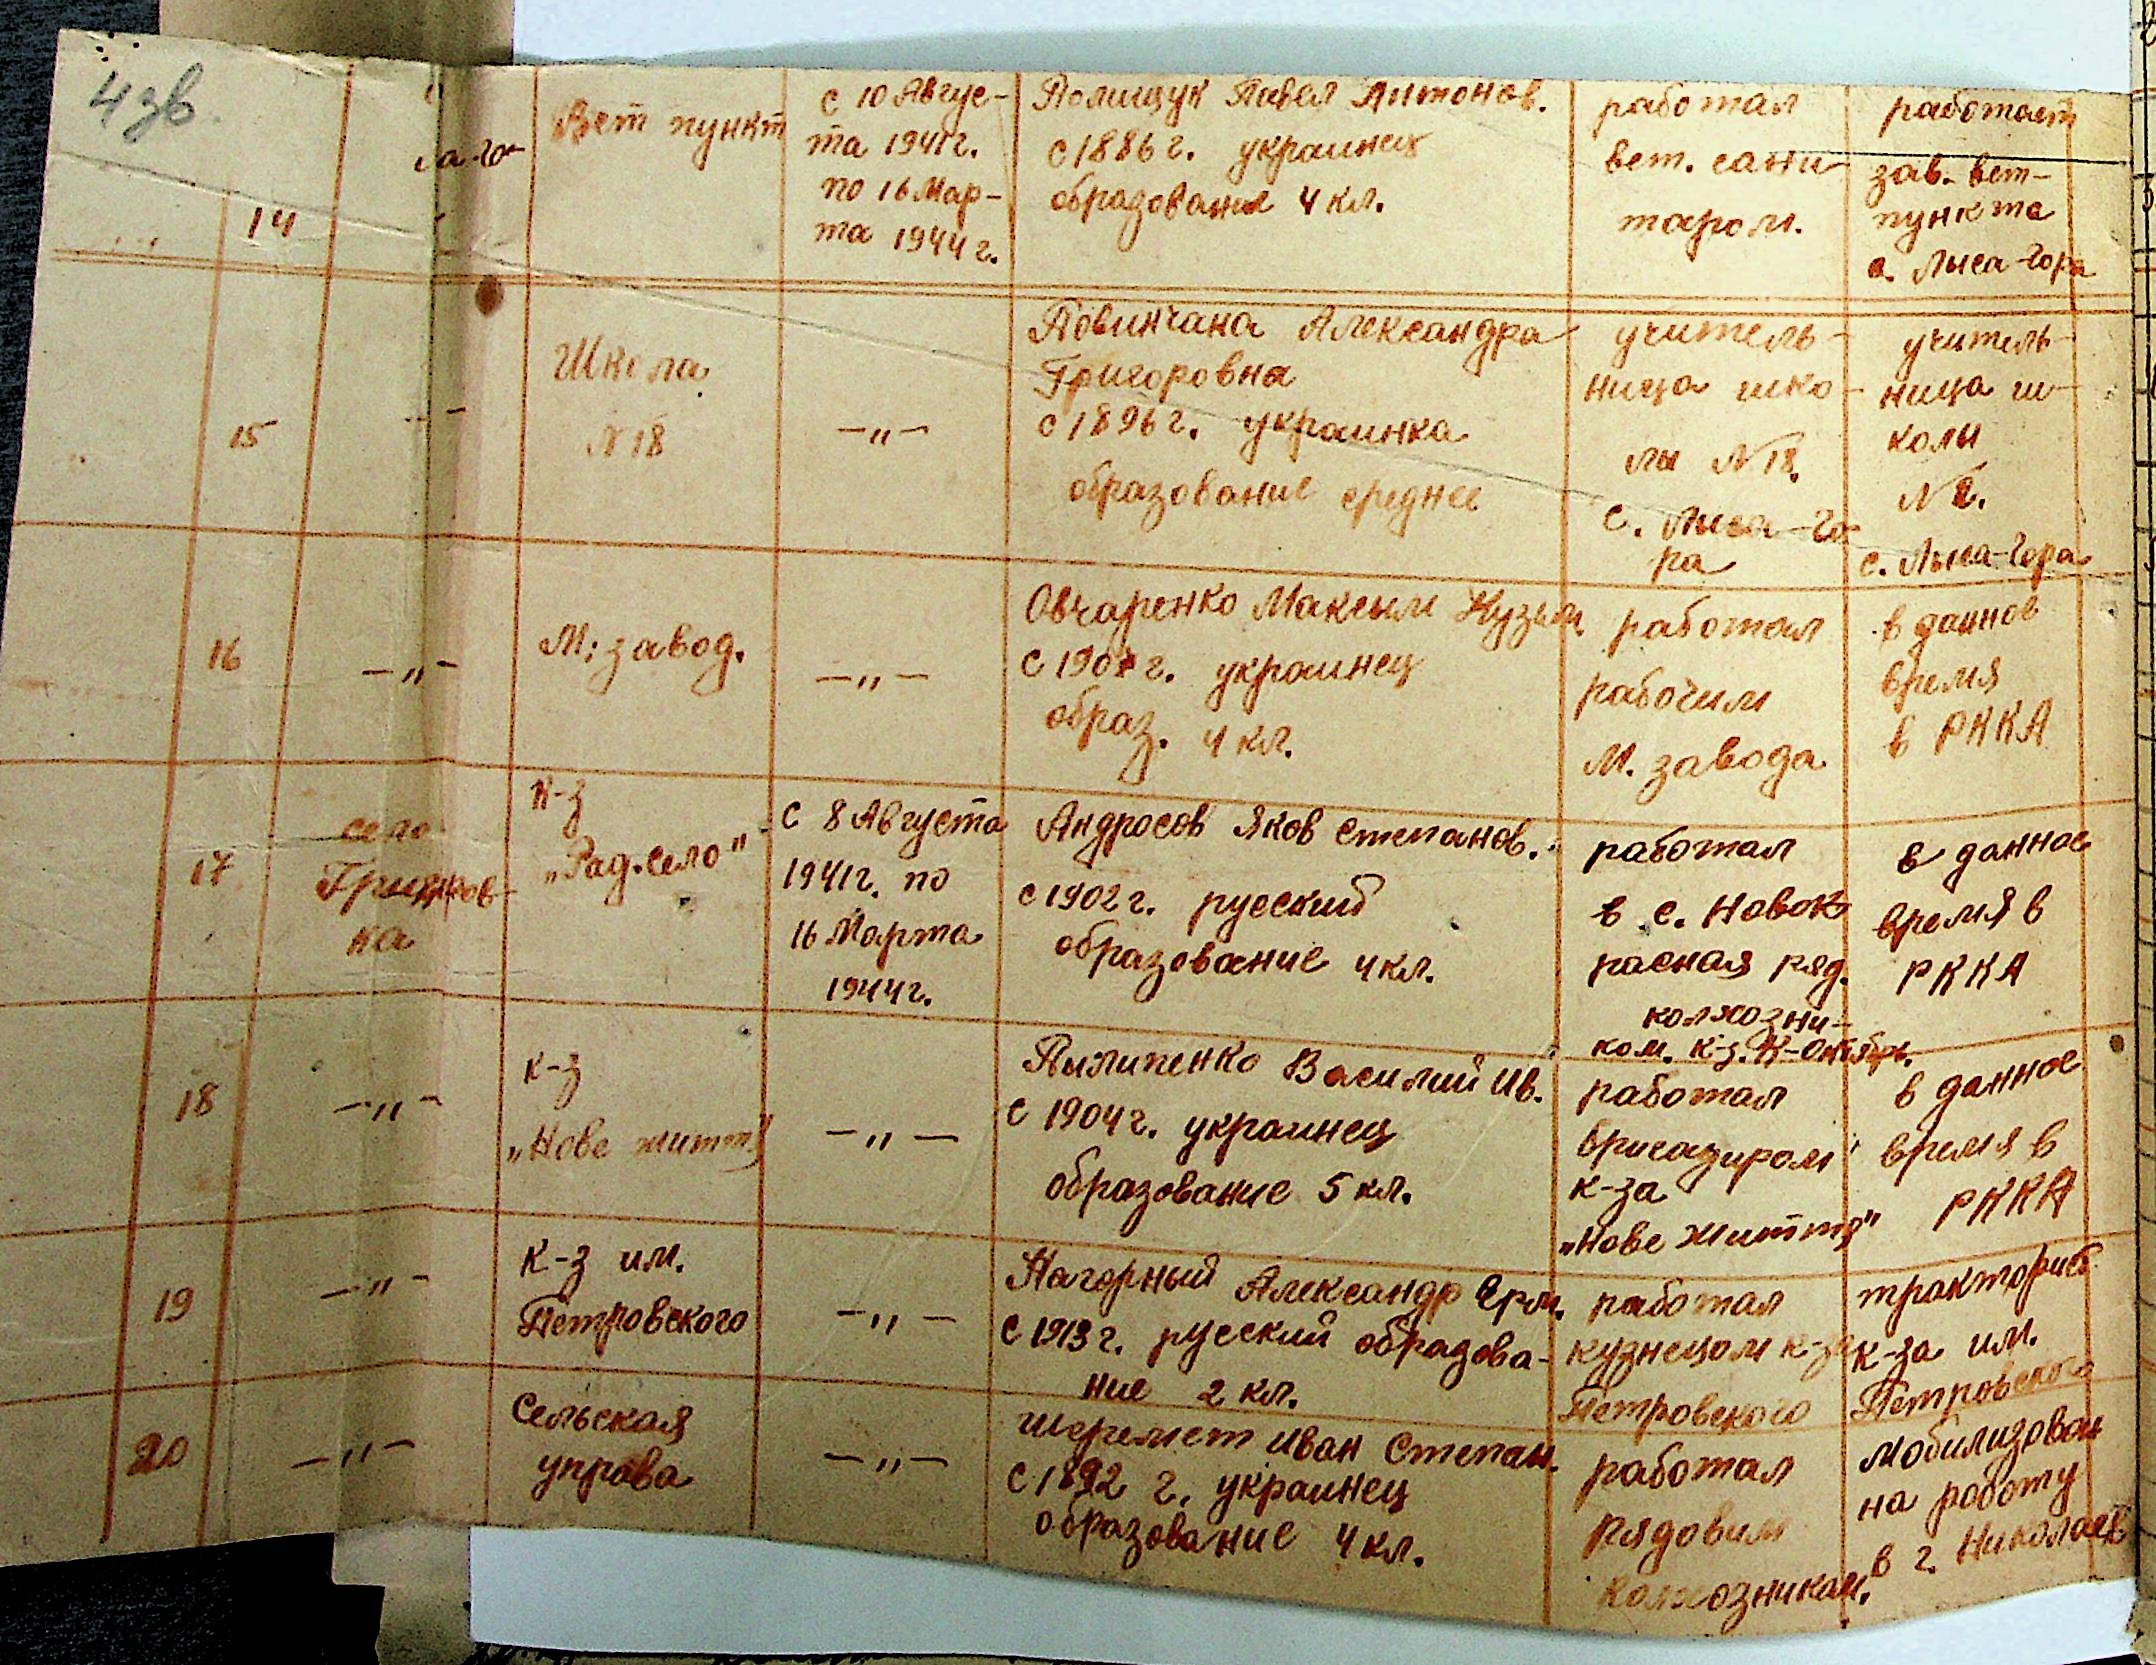 4 зв.
14
са-го-
Вет пункт
с 10 Авгус-
та 1941г.
по 16 Мар-
та 1944 г.
Полищук Павел Антонов.
с 1886 г. украинец
образование 4 кл.
работал
вет. сани-
таром.
работает
зав. вет-
пункта
с. Лыса-Гора
15
— " —
Школа
N 18
— " —
Повинчана Александра
Григоровна
с 1896 г. украинка
образование среднее
учитель-
ница шко-
лы N 18.
с. Лыса-Го-
ра
учитель-
ница ш-
колы
N 2.
с. Лыса-Гора
16
— " —
М; завод.
— " —
Овчаренко Максым Кузьм.
с 1907 г. украинец
образ. 4 кл.
работал
рабочим
М. завода
в даннов
время
в РККА
17
село
ка
к-з
„Рад. село"
с 8 Августа
1941г. по
16 Марта
1944г.
Андросов Яков Степанов.
с 1902 г. русский
образование 4 кл.
работал
в с. Новок
расная ряд.
колхозни-
ком. к-з. К-Октябрь.
в данное
время в
РККА
18
— " —
к-з
„Нове життя"
— " —
Пылипенко Василий Ив.
с 1904 г. украинец
образование 5 кл.
работал
бригадиром
к-за
„Нове життя"
в данное
время в
РККА
19
— " —
к-з им.
Петровского
— " —
Нагорный Александр Ерм.
с 1913 г. русский образова-
ние 2 кл.
работал
кузнецом к-за
Петровского
тракторист
к-за им.
Петровского
20
— " —
Сельская
управа
— " —
Шеремет Иван Степан.
с 1892 г. украинец
образование 4 кл.
работал
рядовим
колхозником.
мобилизован
на роботу
в г. Николаев